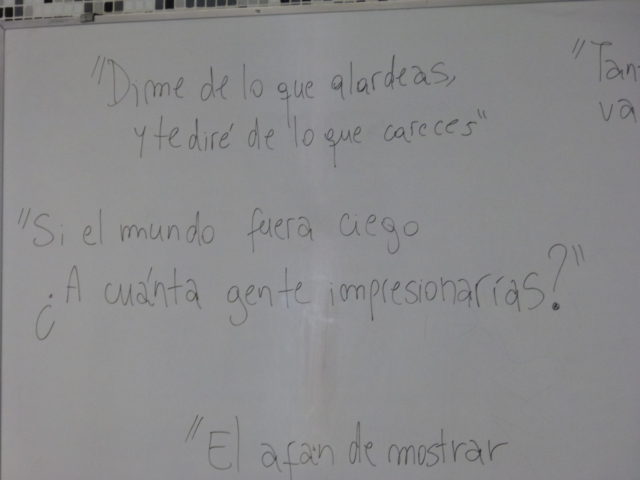 "Dime de lo que alardeas,
y te diré de lo que careces"
"Tan
va
"Si el mundo fuera ciego
¿A cuánta gente impresionarías?"
"El afán de mostrar